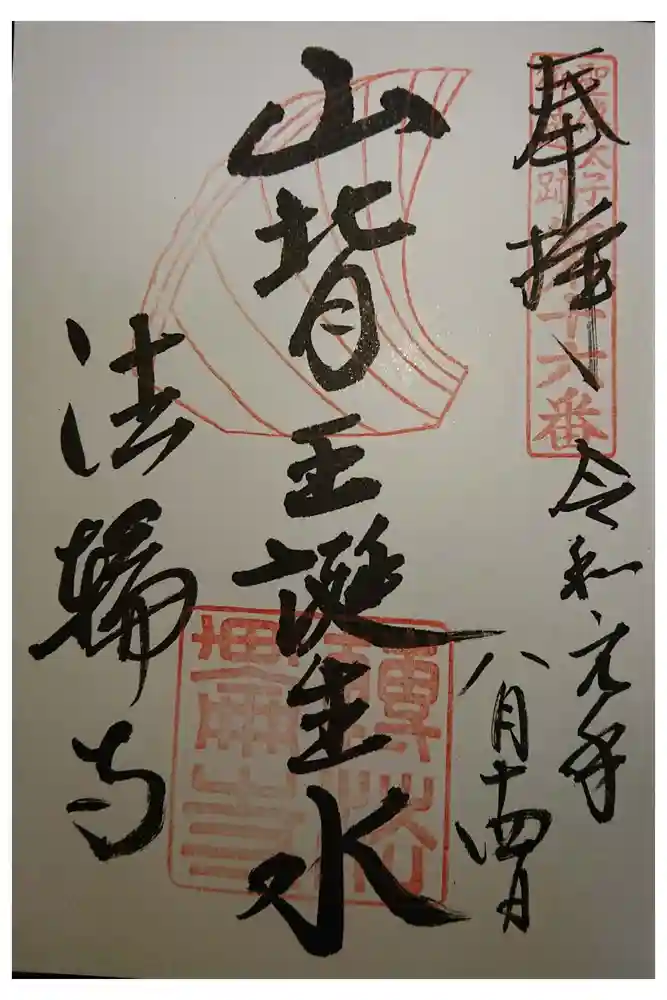 奉拝
聖徳太子
御遺跡
第十六番
令和元年
八月十四日
山背王誕生水
法輪寺